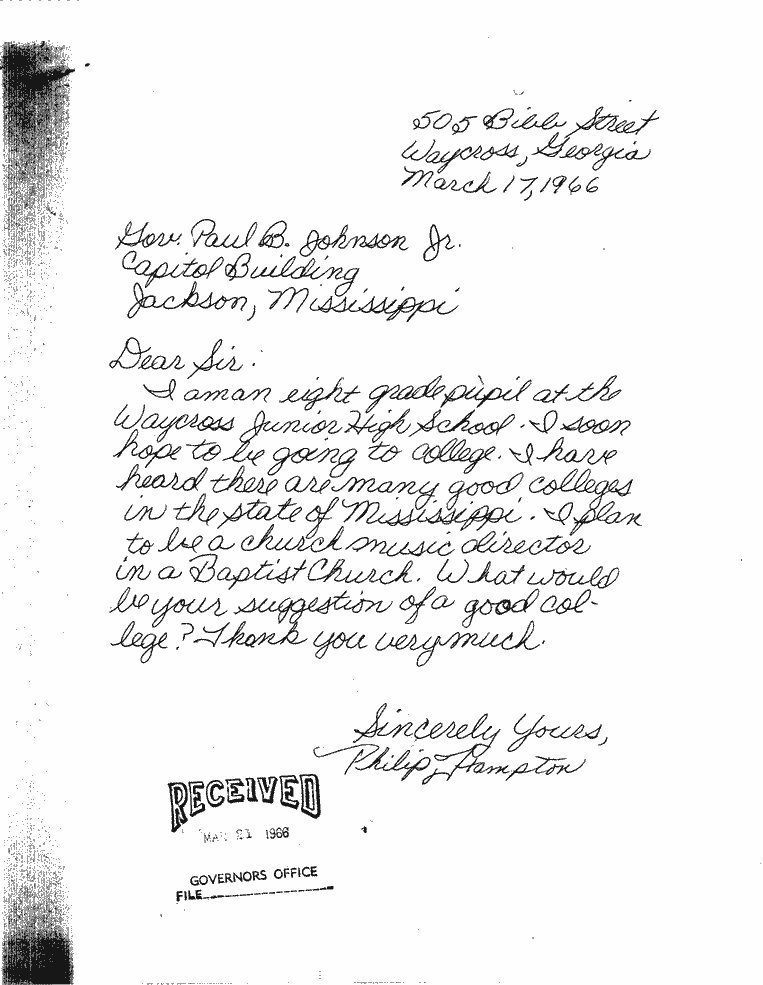 505 Bibb Street
Waycross, Georgia
March 17, 1966
Gov. Paul B. Johnson Jr.
Capitol Building
Jackson, Mississippi
Dear Sir:
I am an eight grade pupil at the
Waycross Junior High School. I soon
hope to be going to college. I have
heard there are many good colleges
in the state of Mississippi. I plan
to be a church music director
in a Baptist Church. What would
be your suggestion of a good col-
lege? Thank you very much.
Sincerely Yours,
Philip Hampton
RECEIVED
MAR 21 1966
GOVERNORS OFFICE
FILE